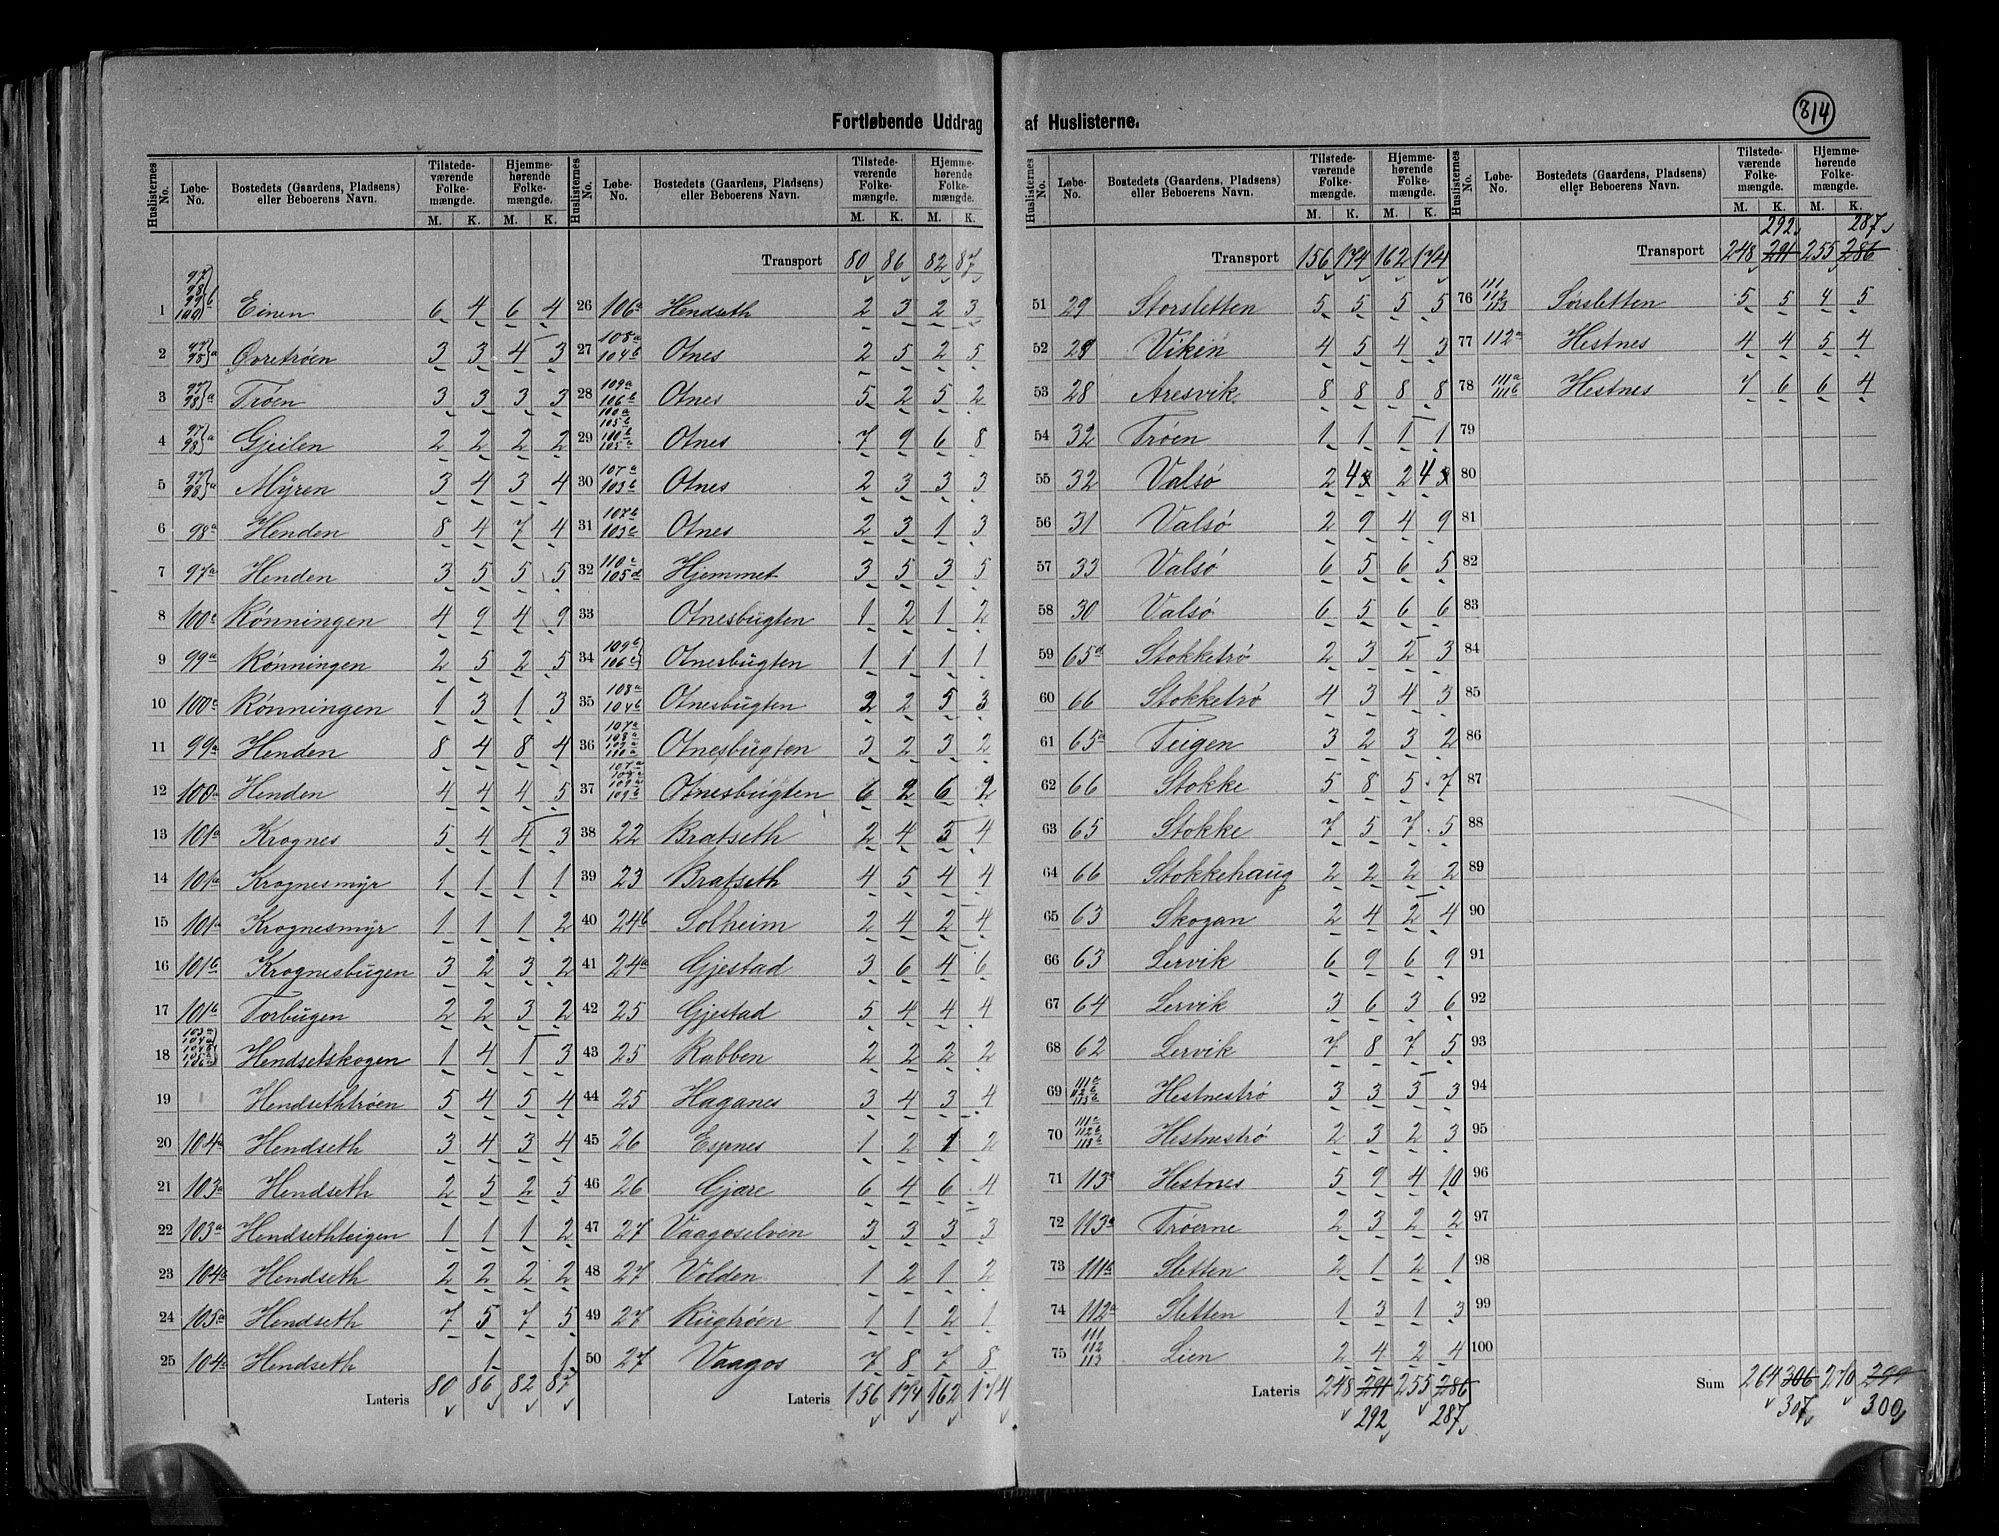 814
Fortløbende Uddrag af Huslisterne.
Huslisternes No. | Løbe-No. | Bostedets (Gaardens, Pladsens) eller Beboerens Navn. | Tilstede-værende Folke-mængde. M. K. | Hjemme-hørende Folke-mængde. M. K.
1 97 98 99 100 b Einen 6 4 6 4
2 97 98 a Øvretrøen 3 3 4 3
3 97 98 a Trøen 3 3 3 3
4 97 98 a Gjeilen 2 2 2 2
5 97 98 a Myren 3 4 3 4
6 98a Henden 8 4 7 4
7 97a Henden 3 5 5 5
8 100c Rønningen 4 9 4 9
9 99a Rønningen 2 5 2 5
10 100c Rønningen 1 3 1 3
11 99a Henden 8 4 8 4
12 100a Henden 4 4 4 5
13 101a Krognes 5 4 4 3
14 101a Krognesmyr 1 1 1 1
15 101a Krognesmyr 1 1 1 2
16 101b Krognesbugen 3 2 3 2
17 101b Torbugen 2 2 3 2
18 Hendsetskogen 1 4 1 3
19 Hendsethtrøen 5 4 5 4
20 104a Hendseth 3 4 3 4
21 103a Hendseth 2 5 2 5
22 103a Hendsethteigen 1 1 1 2
23 104b Hendseth 2 2 2 2
24 105a Hendseth 7 5 7 5
25 104 Hendseth 1 1
Lateris 80 86 82 87
Huslisternes No. | Løbe-No. | Bostedets (Gaardens, Pladsens) eller Beboerens Navn. | Tilstede-værende Folke-mængde. M. K. | Hjemme-hørende Folke-mængde. M. K.
Transport 80 86 82 87
26 106a Hendseth 2 3 2 3
27 108a 104b Otnes 2 5 2 5
28 109a 106b Otnes 5 2 5 2
29 Otnes 7 9 6 8
30 107a 103b Otnes 2 3 3 3
31 107b 103c Otnes 2 3 1 3
32 110a 105d Hjemmet 3 5 3 5
33 Otnesbugten 1 2 1 2
34 109b 106c Otnesbugten 1 1 1 1
35 108a 104b Otnesbugten 2 2 5 3
36 Otnesbugten 3 2 3 2
37 Otnesbugten 6 2 6 2
38 22 Bratseth 2 4 3 4
39 23 Bratseth 4 5 4 4
40 24b Solheim 2 4 2 4
41 24a Gjestad 3 6 4 6
42 25 Gjestad 5 4 4 4
43 25 Rabben 2 2 2 2
44 25 Haganes 3 4 3 4
45 26 Espnes 1 2 1 2
46 26 Gjøre 6 4 6 4
47 27 Vaagoselven 3 3 3 3
48 27 Volden 1 2 1 2
49 27 Rugtrøen 1 1 2 1
50 27 Vaagos 7 8 7 8
Lateris 156 174 162 174
Huslisternes No. | Løbe-No. | Bostedets (Gaardens, Pladsens) eller Beboerens Navn. | Tilstede-værende Folke-mængde. M. K. | Hjemme-hørende Folke-mængde. M. K.
Transport 156 174 162 174
51 29 Storsletten 5 5 5 5
52 28 Viken 4 5 4 3
53 28 Aresvik 8 8 8 8
54 32 Trøen 1 1 1 1
55 32 Valsø 2 4 3 2 4 3
56 31 Valsø 2 9 4 9
57 33 Valsø 6 5 6 5
58 30 Valsø 6 5 6 6
59 65d Stokketrø 2 3 2 3
60 66 Stokketrø 4 3 4 3
61 65a Teigen 3 2 3 2
62 66 Stokke 5 8 5 7
63 65 Stokke 7 5 7 5
64 66 Stokkehaug 2 2 2 2
65 63 Skogan 2 4 2 4
66 63 Lervik 6 9 6 9
67 64 Lervik 3 6 3 6
68 62 Lervik 7 8 7 5
69 111a 112b 113b Hestnestrø 3 3 3 3
70 111a 112b 113b Hestnestrø 2 3 2 3
71 113a Hestnes 5 9 4 10
72 113a Trøerne 2 3 2 2
73 111b Sletten 2 1 2 1
74 112a Sletten 1 3 1 3
75 111 112 113 Lien 2 4 2 4
Lateris 248 291 255 286
292 287
Huslisternes No. | Løbe-No. | Bostedets (Gaardens, Pladsens) eller Beboerens Navn. | Tilstede-værende Folke-mængde. M. K. | Hjemme-hørende Folke-mængde. M. K.
292 287
Transport 248 291 255 286
76 111 112 113 Sorsletten 5 5 4 5
77 112a Hestnes 4 4 5 4
78 111a 111b Hestnes 7 6 6 4
79
80
81
82
83
84
85
86
87
88
89
90
91
92
93
94
95
96
97
98
99
100
Sum 264 306 270 299
307 300